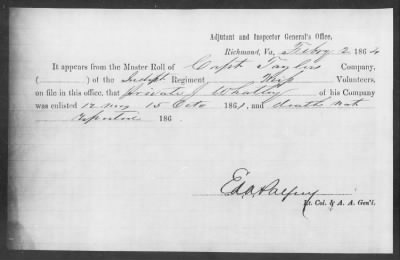 Adjutant and Inspector General's Office,
Richmond, Va, Feby 2 1864
It appears from the Muster Roll of Capt Taylors Company,
( ) of the Indpt Regiment Miss Volunteers,
on file in this office, that private J Whatley of his Company
was enlisted 12 Mos 15 Octo 1861, and death not
Reported 186
Lt. Col. & A. A. Gen'l.